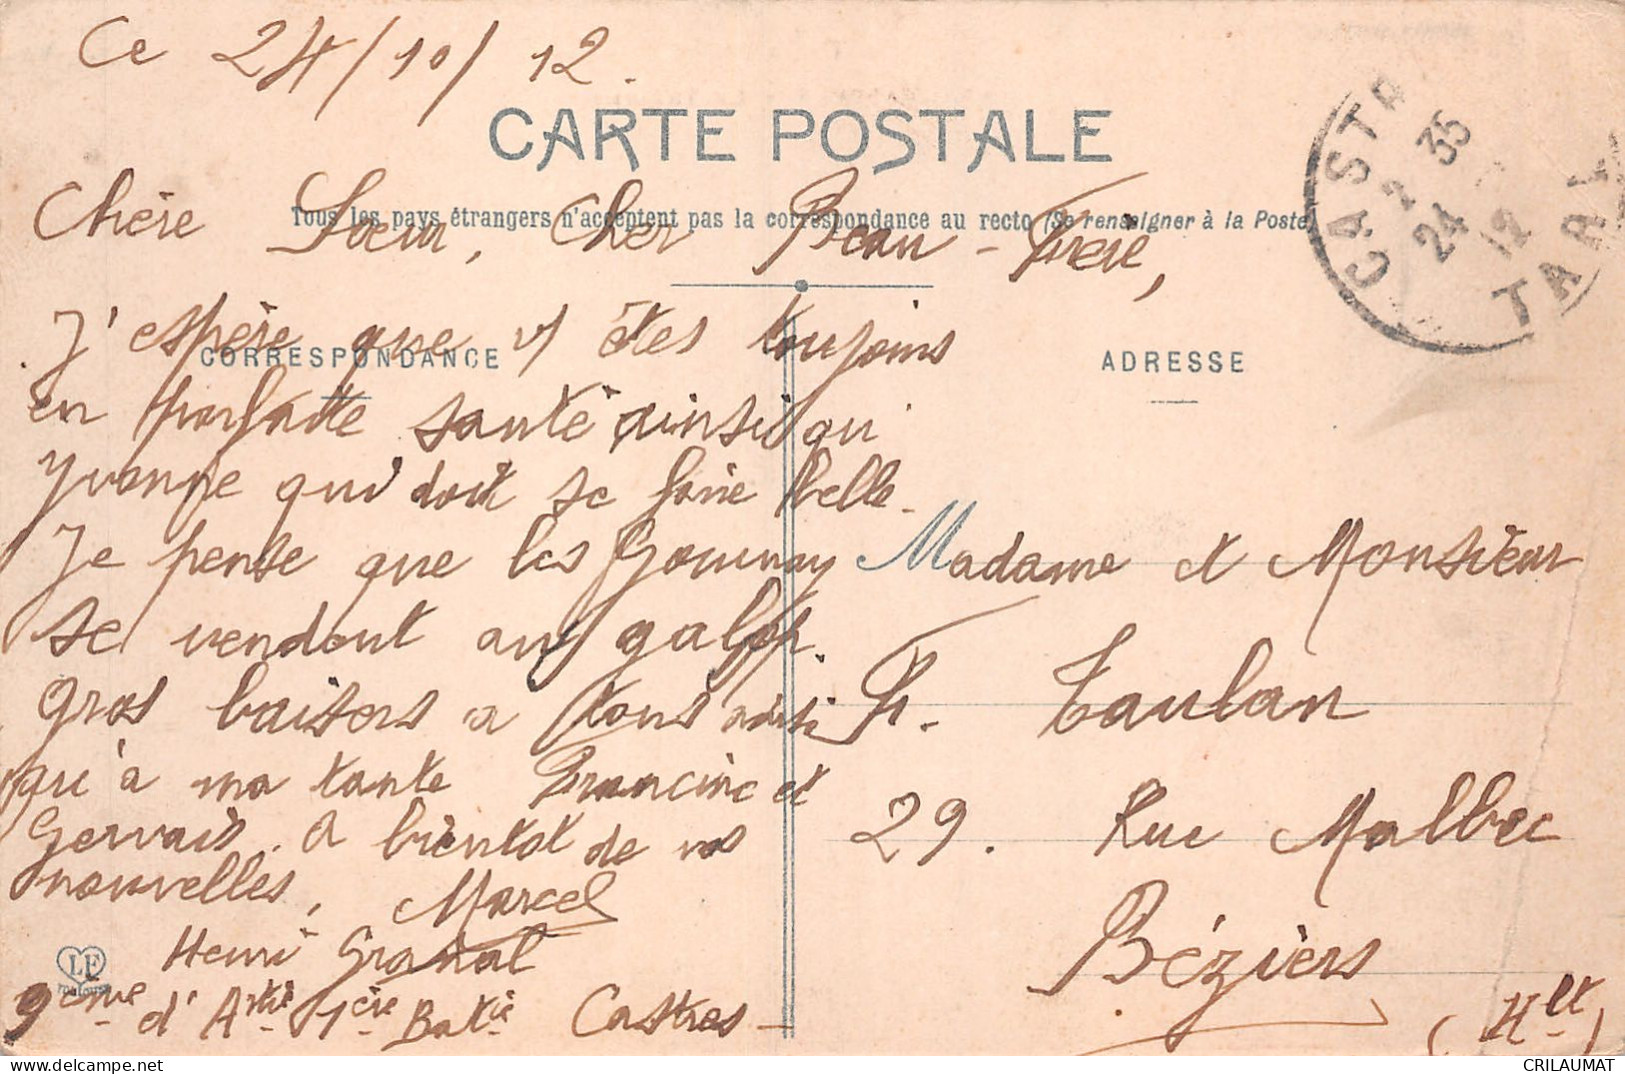 Ce 24/10/12.
CARTE POSTALE
Tous les pays étrangers n'acceptent pas la correspondance au recto (Se renseigner à la Poste)
Chère Sœur, Cher Beau-Frère,
CORRESPONDANCE
J'espère que v/ êtes toujours
en parfaite santé ainsi qu'
Yvonne qui doit se faire belle.
Je pense que les Gournay
se vendent au galop.
Gros baisers a tous ainsi
qu'à ma tante Francine et
Gervais. A bientot de vos
nouvelles,
Marcel
Henri Granal
9ème d'Artie 1ère Batie Castres
LF
Toulouse
ADRESSE
Madame et Monsieur
P. Taulan
29. Rue Malbec
Béziers
(Hlt)
CASTR
TARN
2 35
24
12
CRILAUMAT